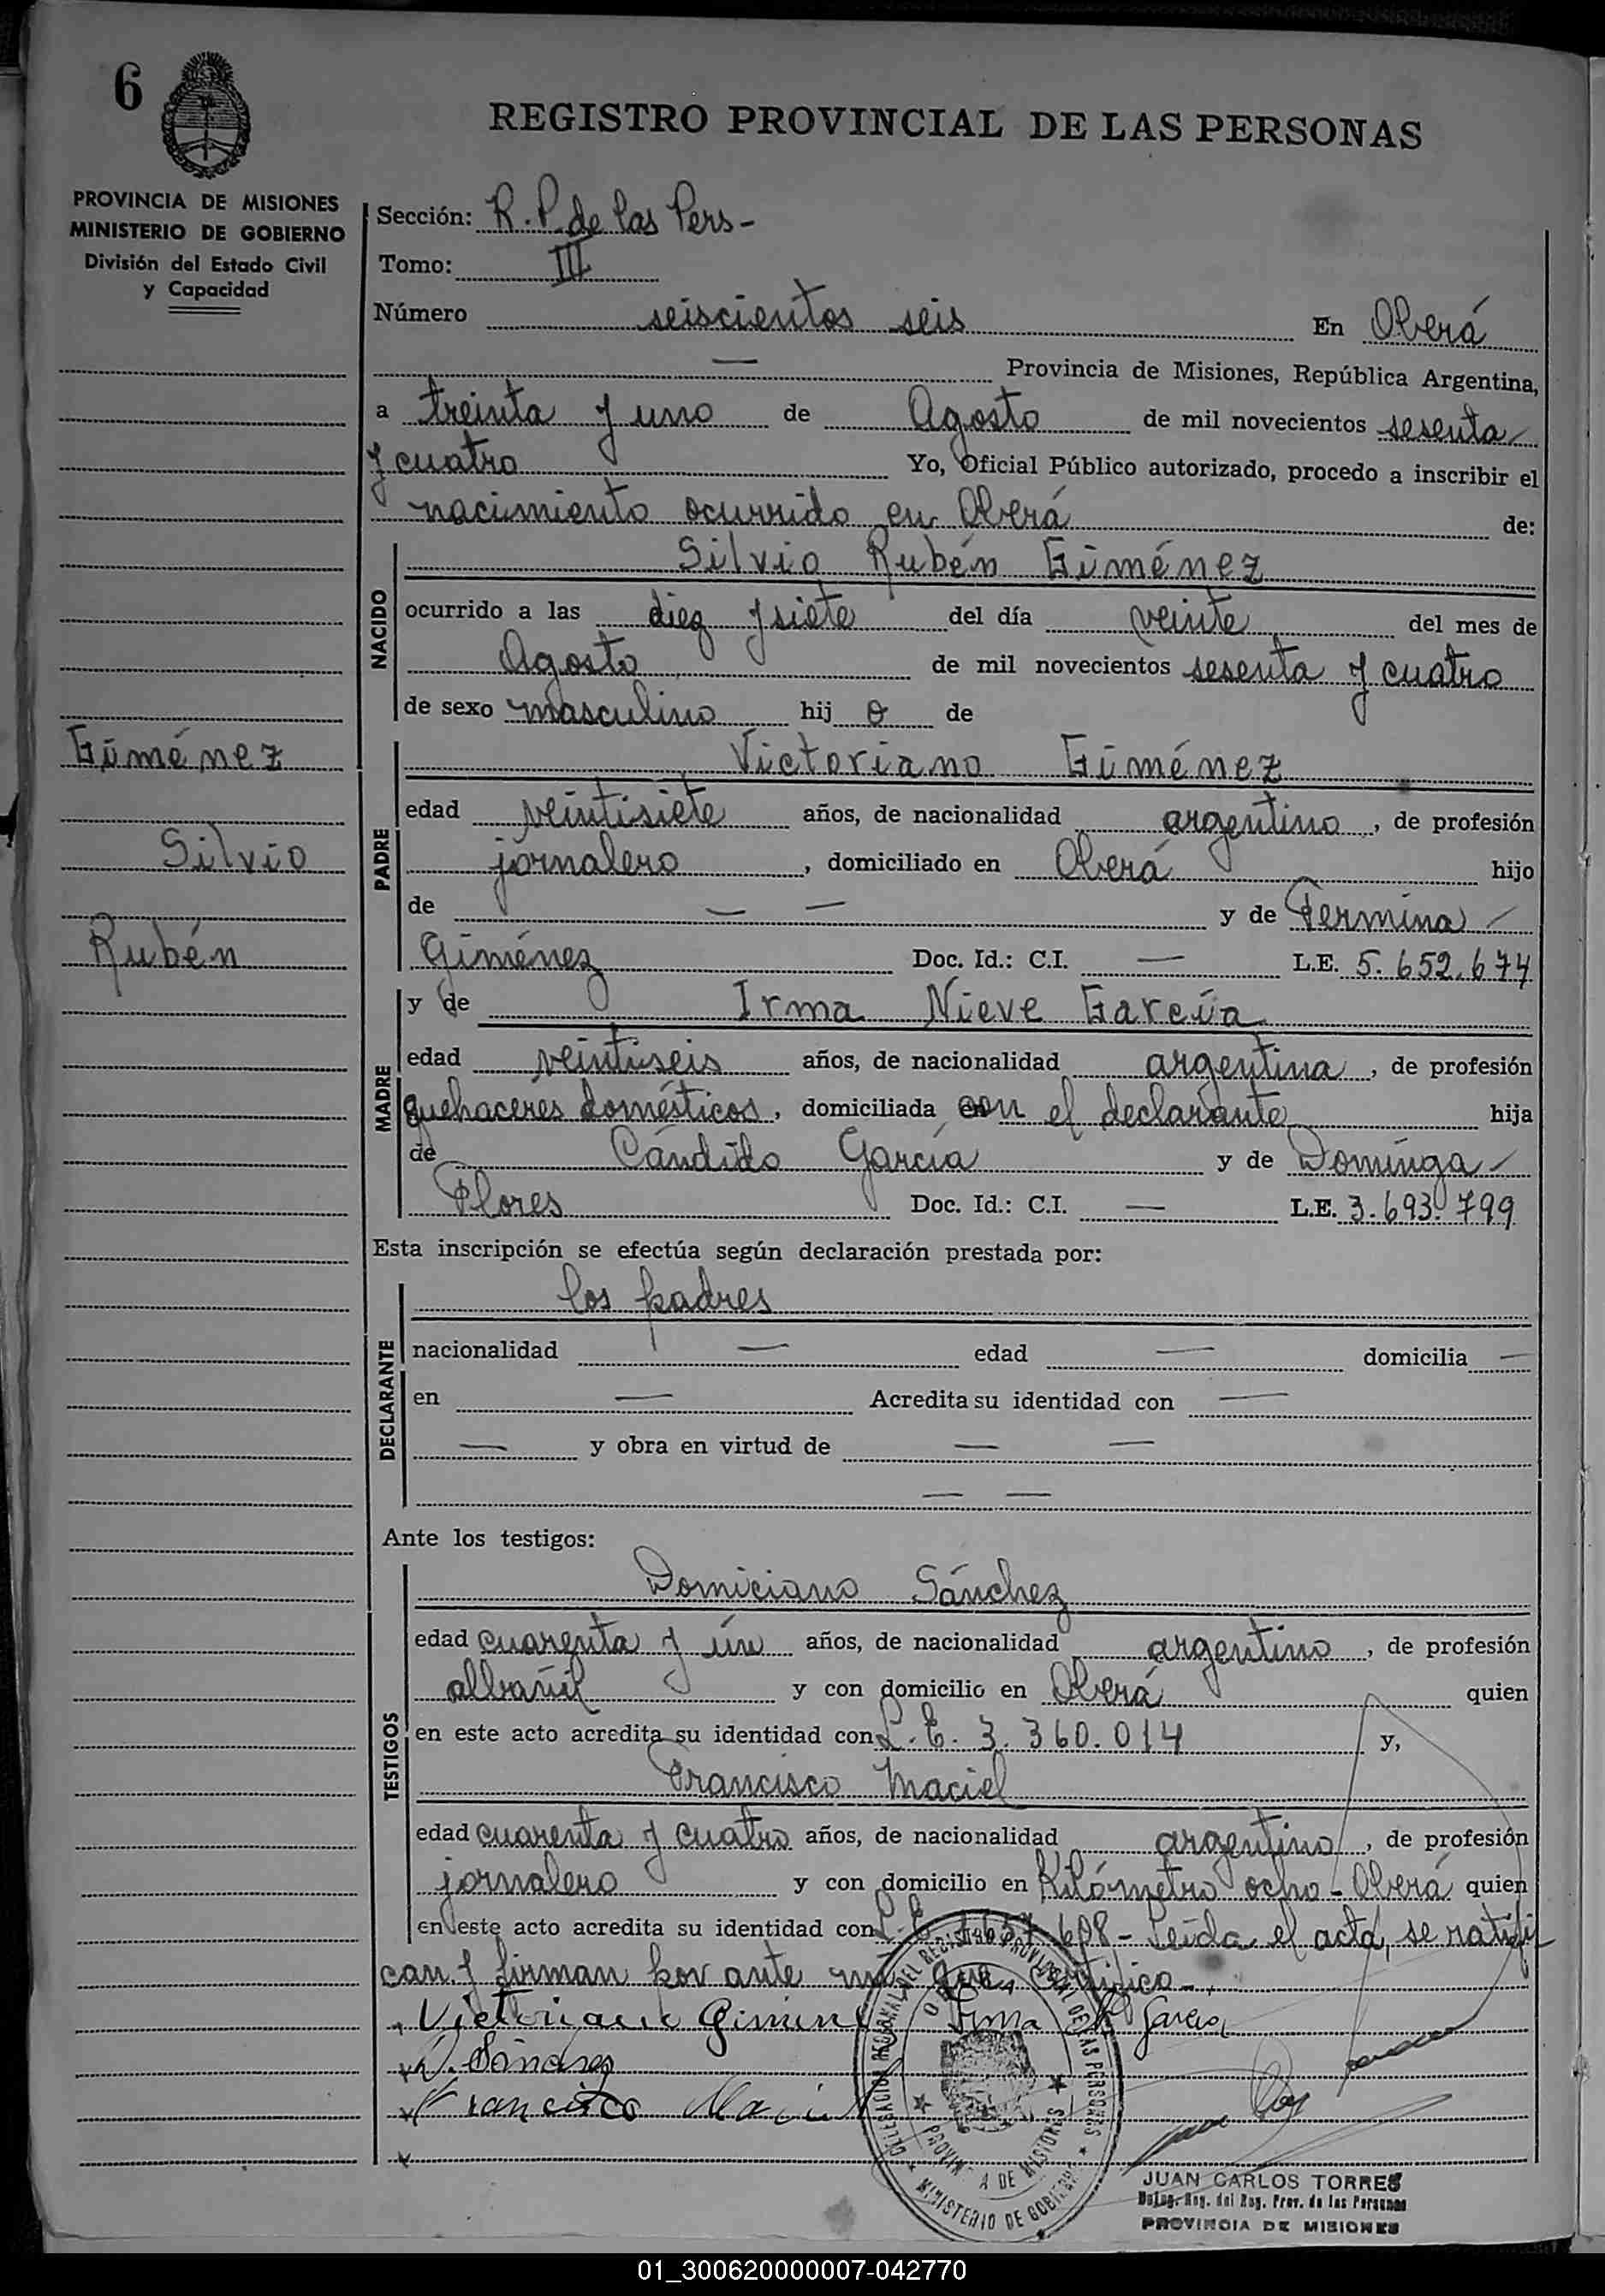 6
REGISTRO PROVINCIAL DE LAS PERSONAS
PROVINCIA DE MISIONES
MINISTERIO DE GOBIERNO
División del Estado Civil
y Capacidad
Sección: R. P. de las Pers -
Tomo: III
Número seiscientos seis En Oberá
— Provincia de Misiones, República Argentina,
a treinta y uno de Agosto de mil novecientos sesenta
y cuatro Yo, Oficial Público autorizado, procedo a inscribir el
nacimiento ocurrido en Oberá de:
NACIDO
Silvio Rubén Giménez
ocurrido a las diez y siete del día veinte del mes de
Agosto de mil novecientos sesenta y cuatro
de sexo masculino hij o de
Giménez
Silvio
Rubén
PADRE
Victoriano Giménez
edad veintisiete años, de nacionalidad argentino, de profesión
jornalero, domiciliado en Oberá hijo
de — — y de Fermina
Giménez Doc. Id.: C.I. — L.E. 5.652.674
MADRE
y de Irma Nieve García
edad veintiseis años, de nacionalidad argentina, de profesión
quehaceres domésticos, domiciliada con el declarante hija
de Cándido García y de Dominga
Flores Doc. Id.: C.I. — L.E. 3.693.799
Esta inscripción se efectúa según declaración prestada por:
DECLARANTE
los padres
nacionalidad — edad — domicilia —
en — Acredita su identidad con —
— y obra en virtud de — —
— —
Ante los testigos:
TESTIGOS
Domiciano Sánchez
edad cuarenta y ún años, de nacionalidad argentino, de profesión
albañil y con domicilio en Oberá quien
en este acto acredita su identidad con L. E. 3.360.014 y,
Francisco Maciel
edad cuarenta y cuatro años, de nacionalidad argentino, de profesión
jornalero y con domicilio en Kilómetro ocho - Oberá quien
en este acto acredita su identidad con L. E. 608 - Leída el acta, se ratifi
can y firman por ante mí que certifico -
Victoriano Gimene Irma N Garcia
Francisco Maciel
DELEGACION REGIONAL DEL REGISTRO PROVINCIAL DE LAS PERSONAS
OBERA
PROVINCIA DE MISIONES
MINISTERIO DE GOBIERNO
JUAN CARLOS TORRES
Deleg. Reg. del Reg. Prov. de las Personas
PROVINCIA DE MISIONES
01_300620000007-042770